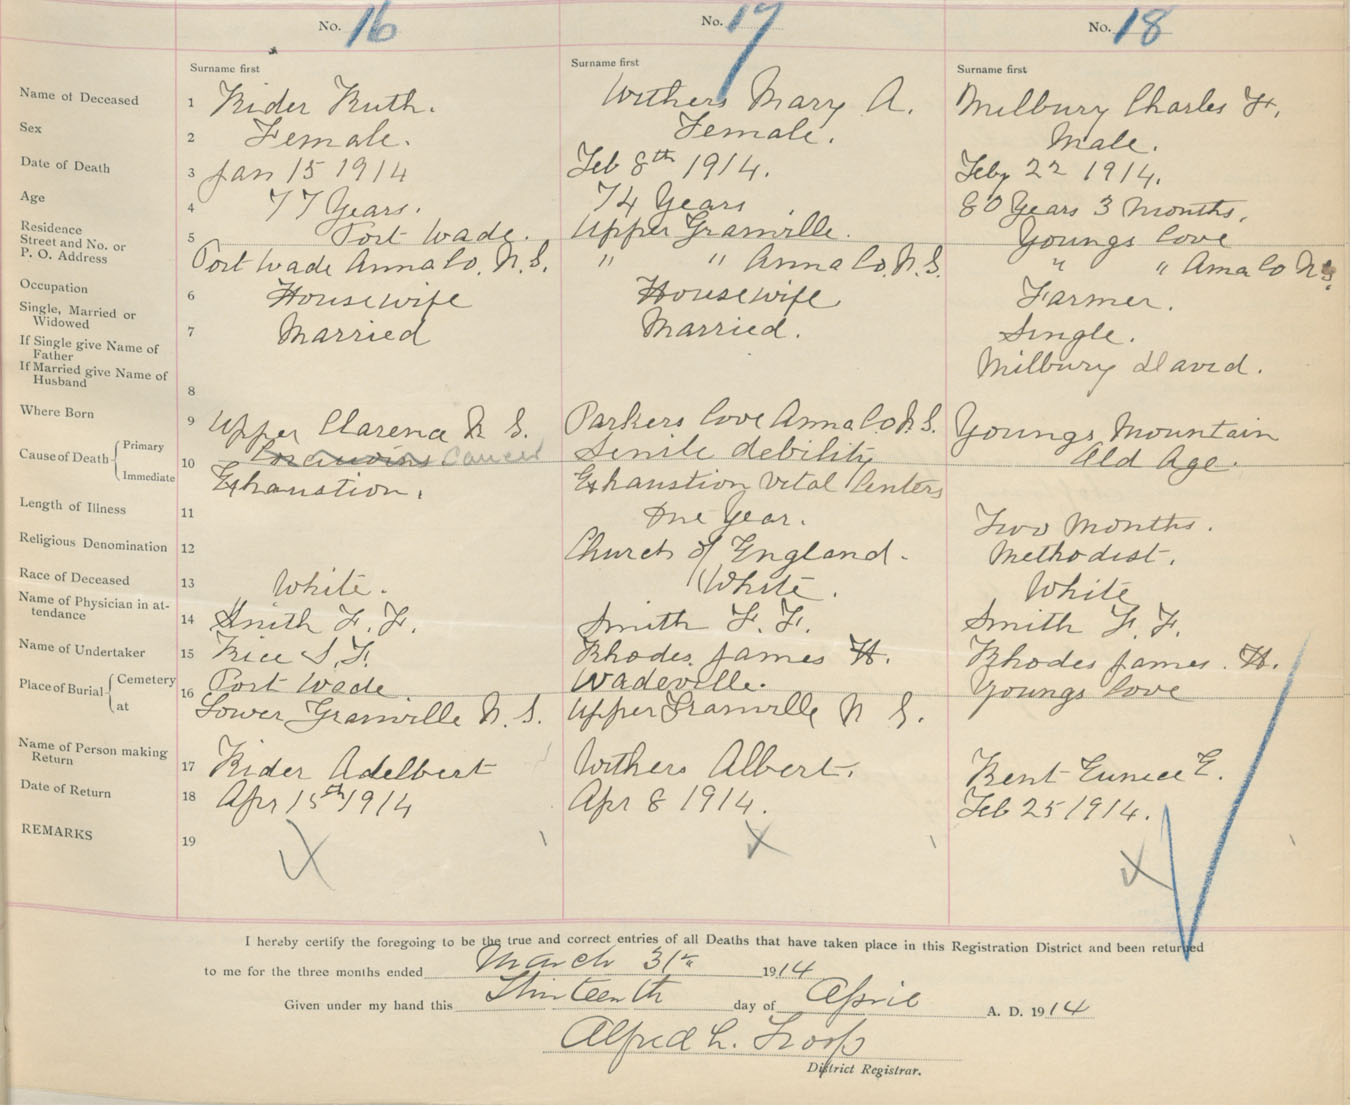 No. 16 No. 17 No. 18
Surname first Surname first Surname first
Name of Deceased 1 Rider Ruth. Withers Mary A. Milbury Charles F.
Sex 2 Female. Female. Male.
Date of Death 3 Jan 15 1914 Feb 8th 1914. Feby 22 1914.
Age 4 77 Years. 74 Years 80 Years 3 Months.
Residence
Street and No. or
P. O. Address
5 Port Wade. Upper Granville. Youngs Cove
Port Wade Anna Co. N. S. " " Anna Co. N. S. " " Anna Co N S.
Occupation 6 Housewife Housewife Farmer.
Single, Married or
Widowed
7 Married Married. Single.
If Single give Name of
Father
Milbury David.
If Married give Name of
Husband
8
Where Born 9 Upper Clarence N. S. Parkers Cove Anna Co. N. S. Youngs Mountain
Cause of Death Primary 10 Cancer Senile debility Old Age.
Immediate Exhaustion. Exhaustion Vital Centers
Length of Illness 11 One Year. Two Months.
Religious Denomination 12 Church of England. Methodist.
Race of Deceased 13 White. White. White
Name of Physician in at-
tendance
14 Smith F. F. Smith F. F. Smith F. F.
Name of Undertaker 15 Rice Rhodes James H. Rhodes James. H.
Place of Burial Cemetery 16 Port Wade. Wadeville. Youngs Cove
at Lower Granville N. S. Upper Granville N S.
Name of Person making
Return
17 Rider Adelbert Withers Albert. Kent Eunice E.
Date of Return 18 Apr 15th 1914 Apr 8 1914. Feb 25 1914.
REMARKS 19
I hereby certify the foregoing to be the true and correct entries of all Deaths that have taken place in this Registration District and been returned
to me for the three months ended March 31st 1914
Given under my hand this Thirteenth day of April A. D. 1914
Alfred L. Troop
District Registrar.